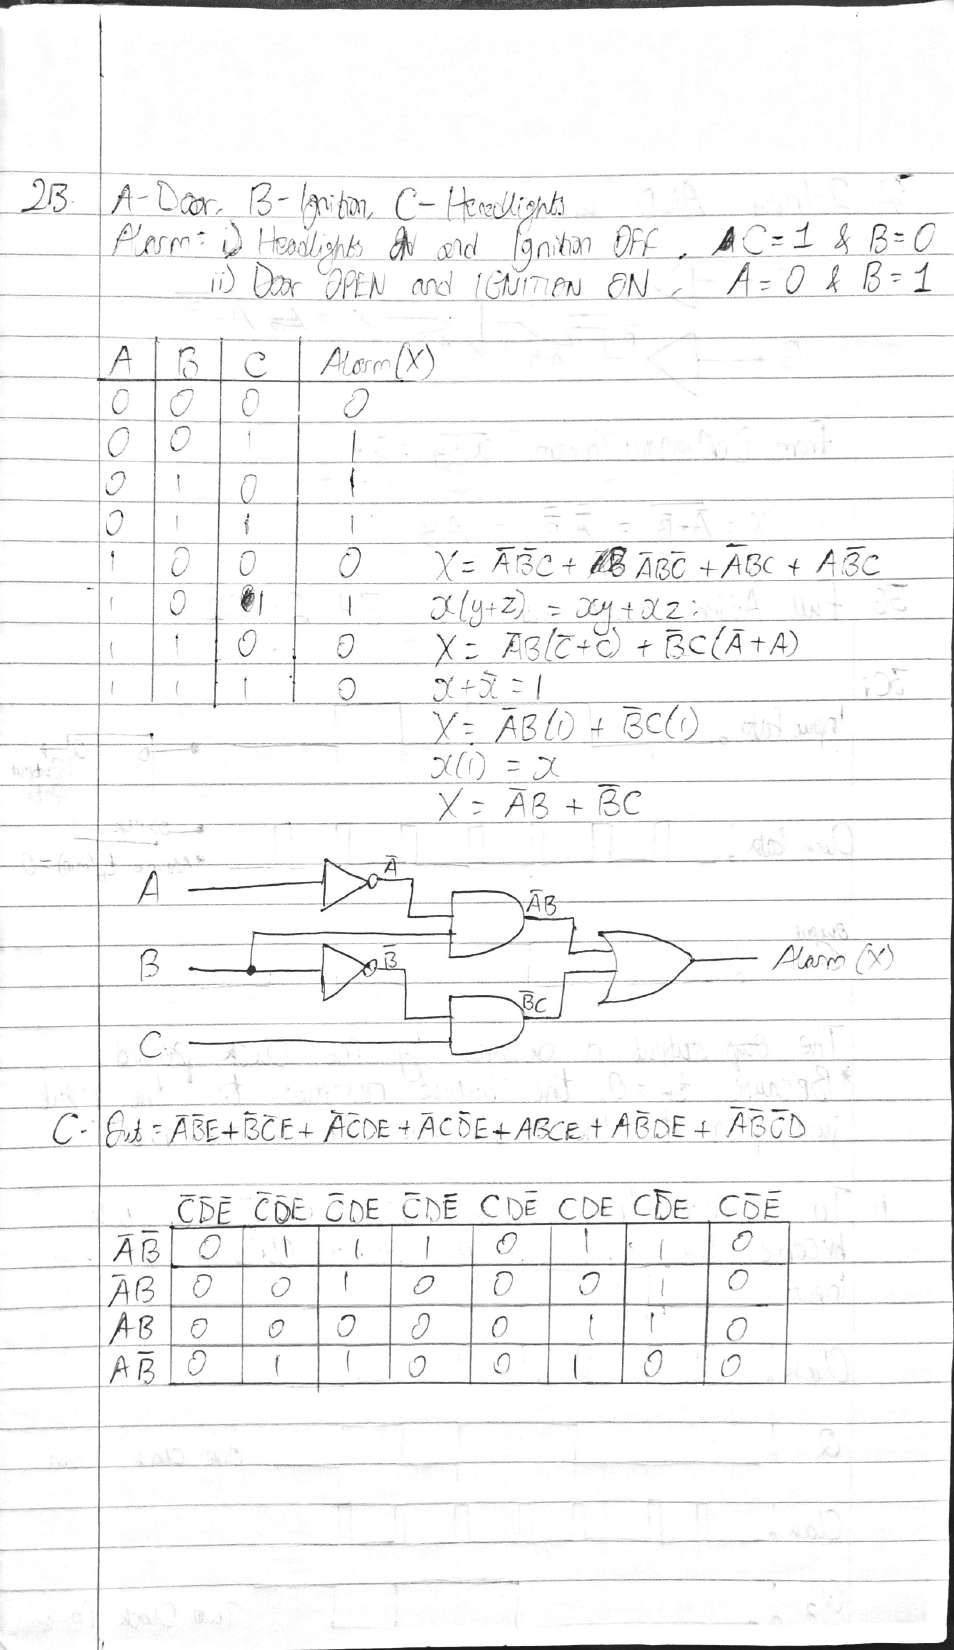 2B. A-Door, B-Ignition, C-Headlights
Alarm = i) Headlights ON and Ignition OFF, C=1 & B=0
ii) Door OPEN and IGNITION ON, A=0 & B=1
A B C Alarm(X)
0 0 0 0
0 0 1 1
0 1 0 1
0 1 1 1
1 0 0 0 X = A̅B̅C + A̅BC̅ + A̅BC + AB̅C
1 0 1 1 x(y+z) = xy+xz:
1 1 0 0 X = A̅B(C̅+C) + B̅C(A̅+A)
1 1 1 0 x+x̅=1
X = A̅B(1) + B̅C(1)
x(1) = x
X = A̅B + B̅C
A̅
A
A̅B
B B̅ Alarm (X)
B̅C
C
C- Out = A̅B̅E + B̅C̅E + A̅C̅DE + A̅CD̅E + ABCE + AB̅DE + A̅B̅C̅D
C̅D̅E̅ C̅D̅E C̅DE C̅DE̅ CDE̅ CDE CD̅E CD̅E̅
A̅B̅ 0 1 1 1 0 1 1 0
A̅B 0 0 1 0 0 0 1 0
AB 0 0 0 0 0 1 1 0
AB̅ 0 1 1 0 0 1 0 0